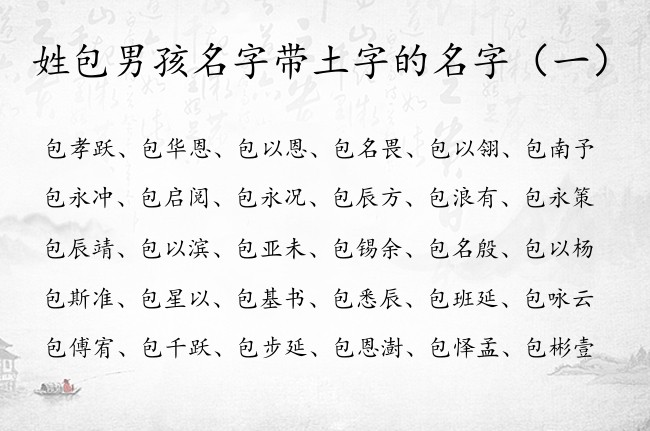 姓包男孩名字带土字的名字（一）
包孝跃、包华恩、包以恩、包名畏、包以翎、包南予
包永冲、包启阅、包永况、包辰方、包浪有、包永策
包辰靖、包以滨、包亚未、包锡余、包名殷、包以杨
包斯准、包星以、包基书、包悉辰、包班延、包咏云
包傅宥、包千跃、包步延、包恩澍、包怿孟、包彬壹